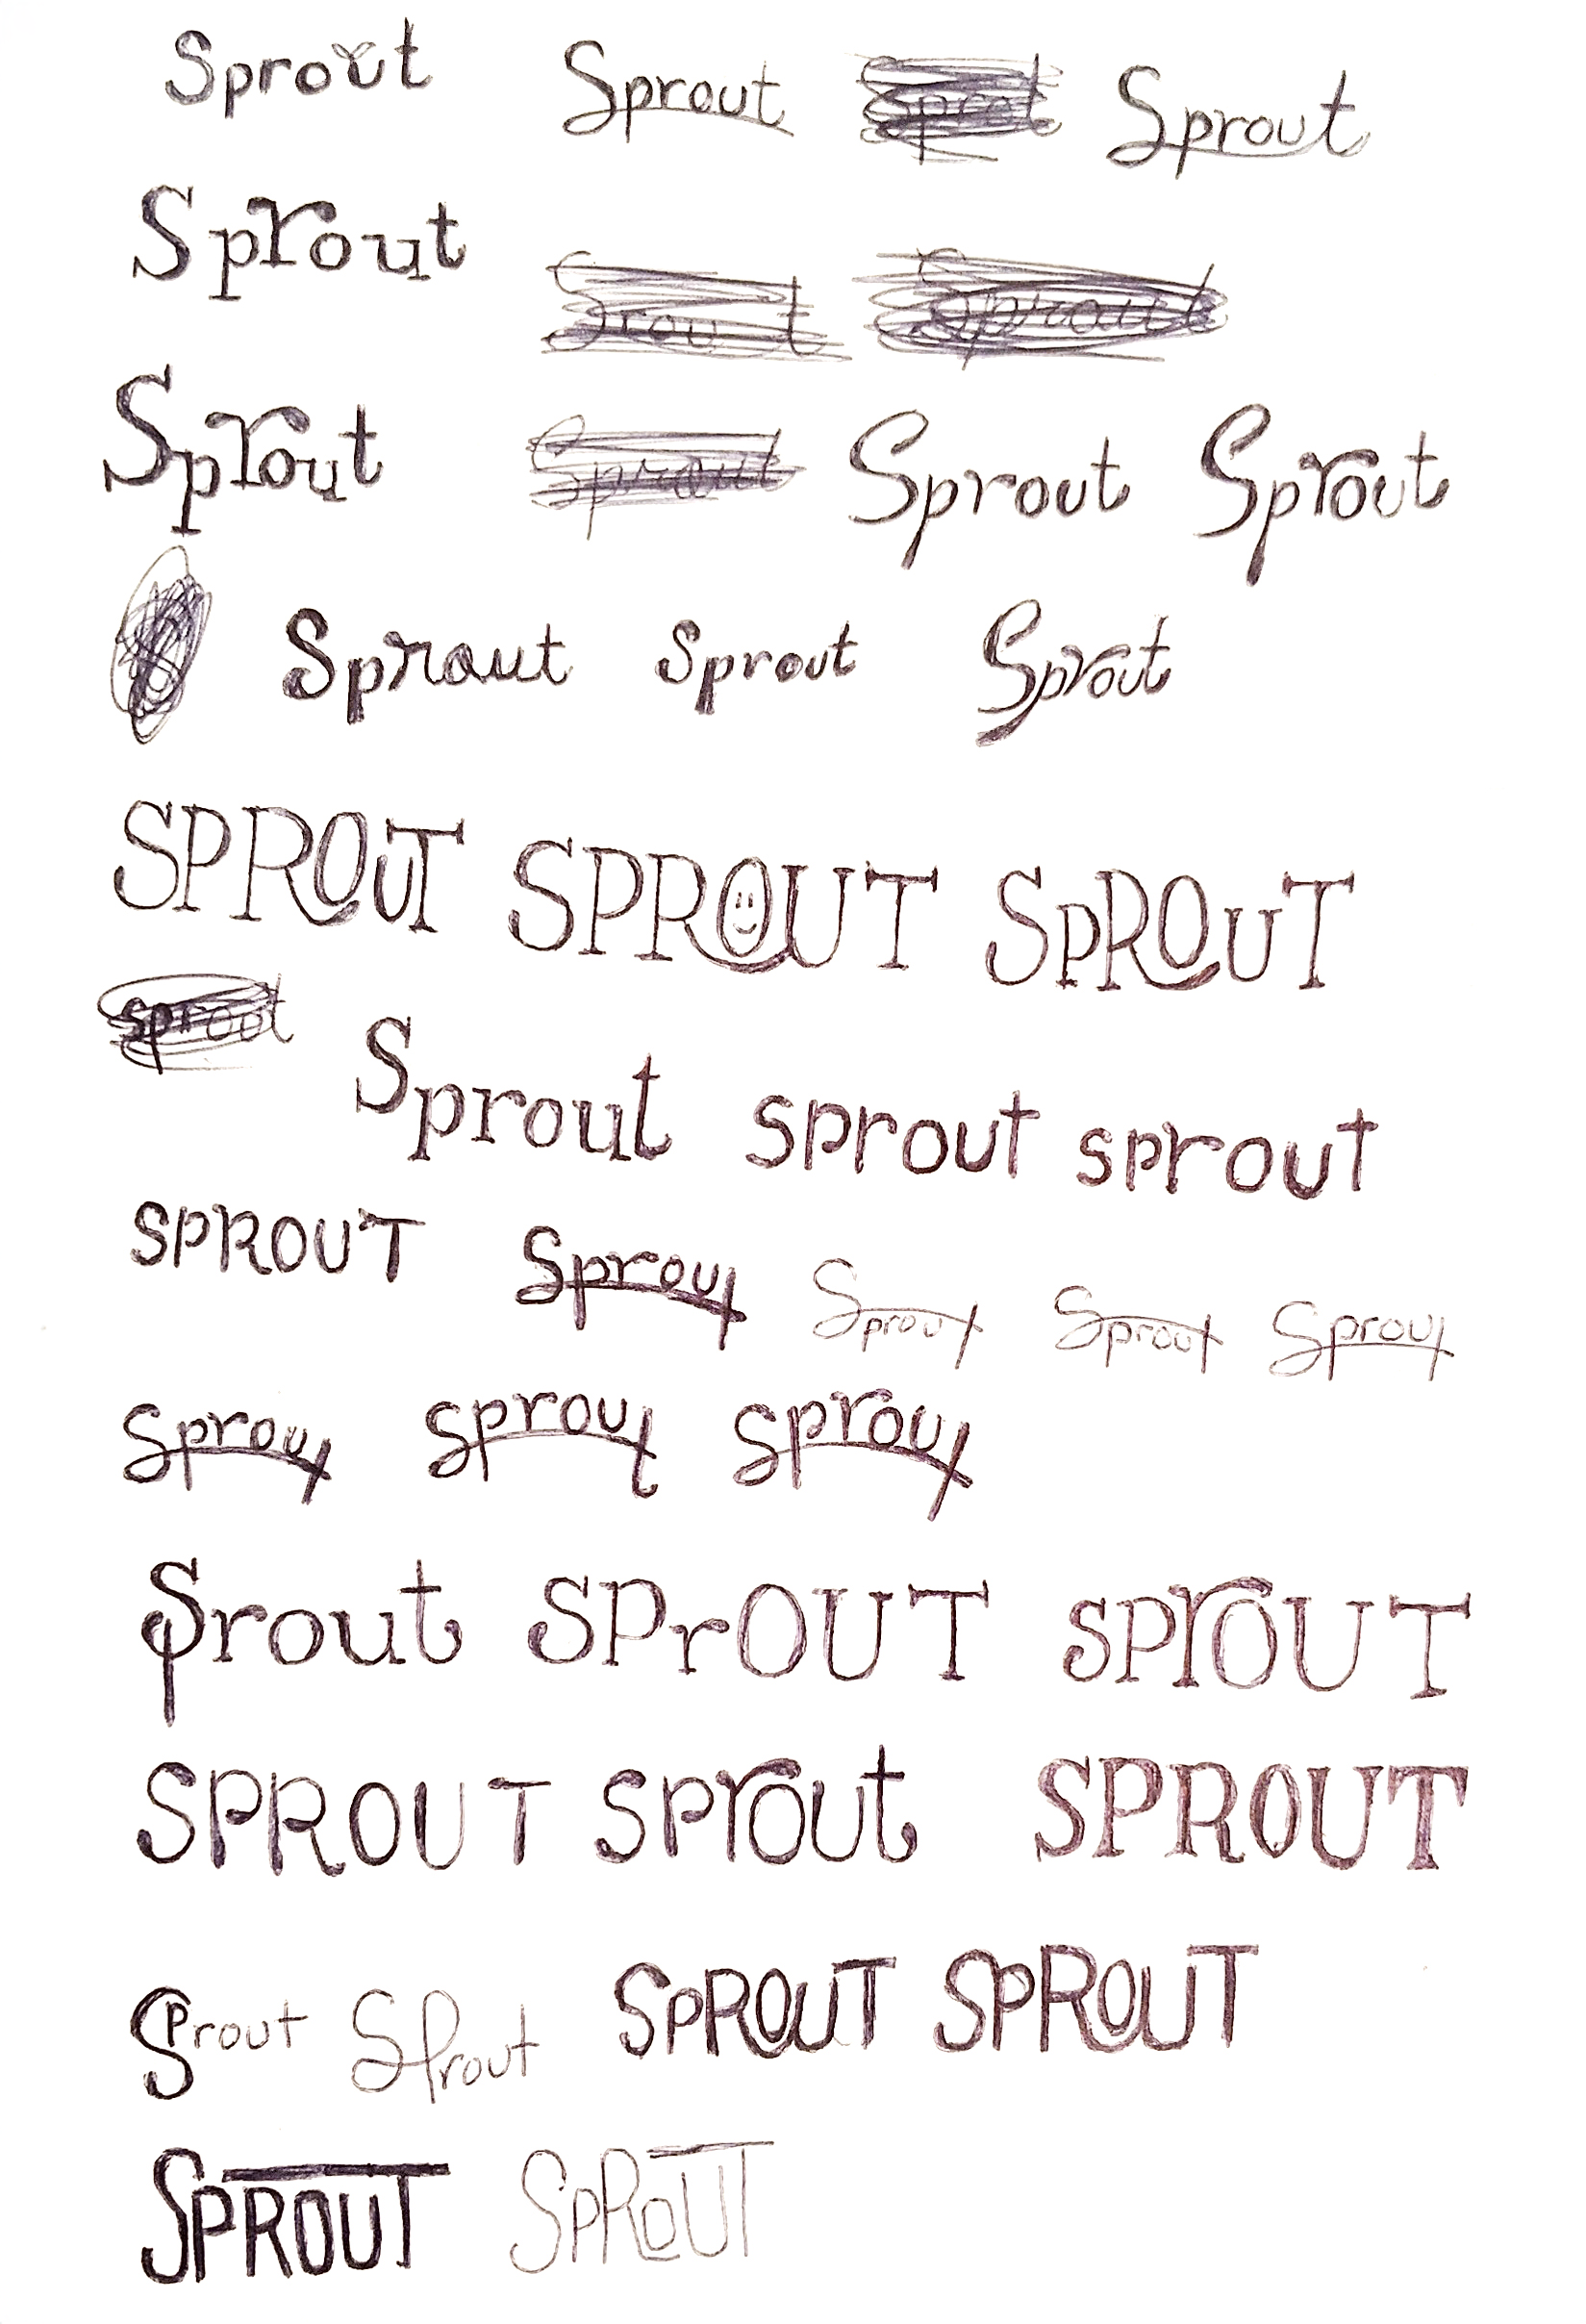 Sprout Sprout Sprout
Sprout
Sprout Sprout Sprout
Sprout Sprout Sprout
SPROUT SPROUT SPROUT
Sprout sprout sprout
SPROUT Sprout Sprout Sprout Sprout
Sprout sprout sprout
Sprout SPrOUT SPrOUT
SPROUT sprout SPROUT
Sprout Sprout SPROUT SPROUT
SPROUT SPROUT